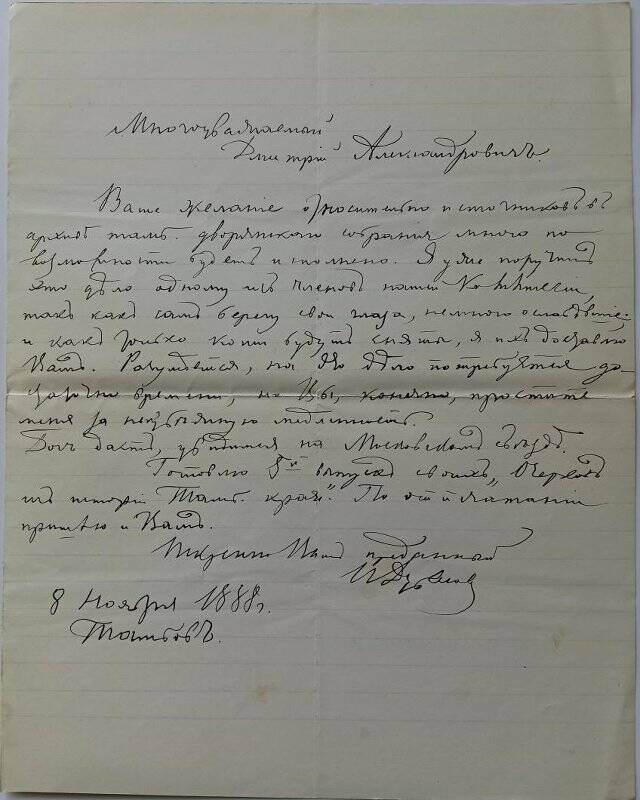 Многоуважаемый
Дмитрій Александровичъ.
Ваше желаніе относительно источниковъ въ
архивѣ тамб. дворянскаго собранія мною по
возможности будетъ исполнено. Я уже поручилъ
это дѣло одному изъ членовъ нашей Коммиссіи
такъ какъ самъ берегу свои глаза, немного ослабѣвшіе,
и какъ только копіи будутъ сняты, я ихъ доставлю
Вамъ. Разумѣется, на это дѣло потребуется до-
статочно времени, но Вы, конечно, простите
меня за неизбѣжную медленность.
Богъ дастъ, увидимся на Московскомъ съѣздѣ.
Готовлю 5й выпускъ своихъ „Очерковъ
изъ исторіи Тамб. края". По отпечатаніи
пришлю и Вамъ.
Искренно Вамъ преданный
И Дубасов
8 Ноября 1888 г.
Тамбовъ.